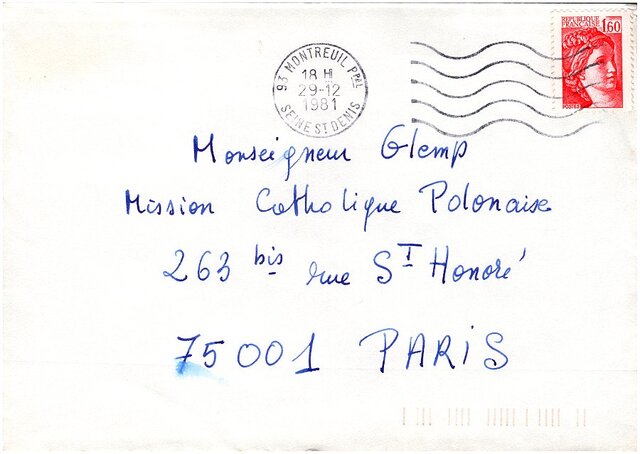 RÉPUBLIQUE
FRANÇAISE 1,60
POSTES
93 MONTREUIL PPAL
18 H
29-12
1981
SEINE ST DENIS
Monseigneur Glemp
Mission Catholique Polonaise
263 bis rue ST Honoré
75001 PARIS